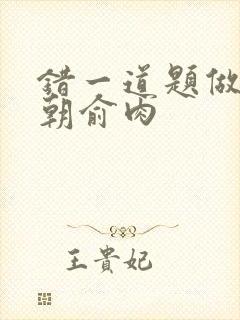 錯一道題做
朝俞肉
王貴妃